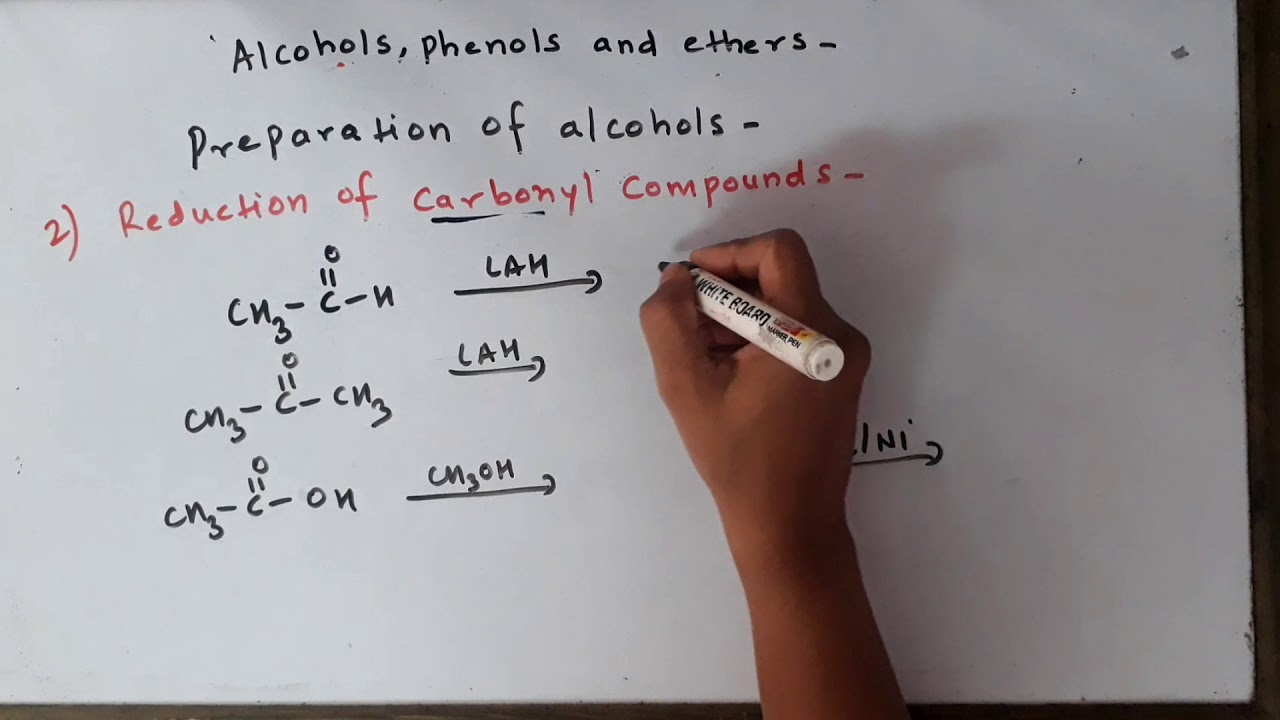 Alcohols, phenols and ethers -
Preparation of alcohols -
2) Reduction of carbonyl compounds -
O
||
CH3 - C - H
LAH
O
||
CH3 - C - CH3
LAH
O
||
CH3 - C - OH
CH3OH
/Ni
WHITE BOARD
MARKER PEN